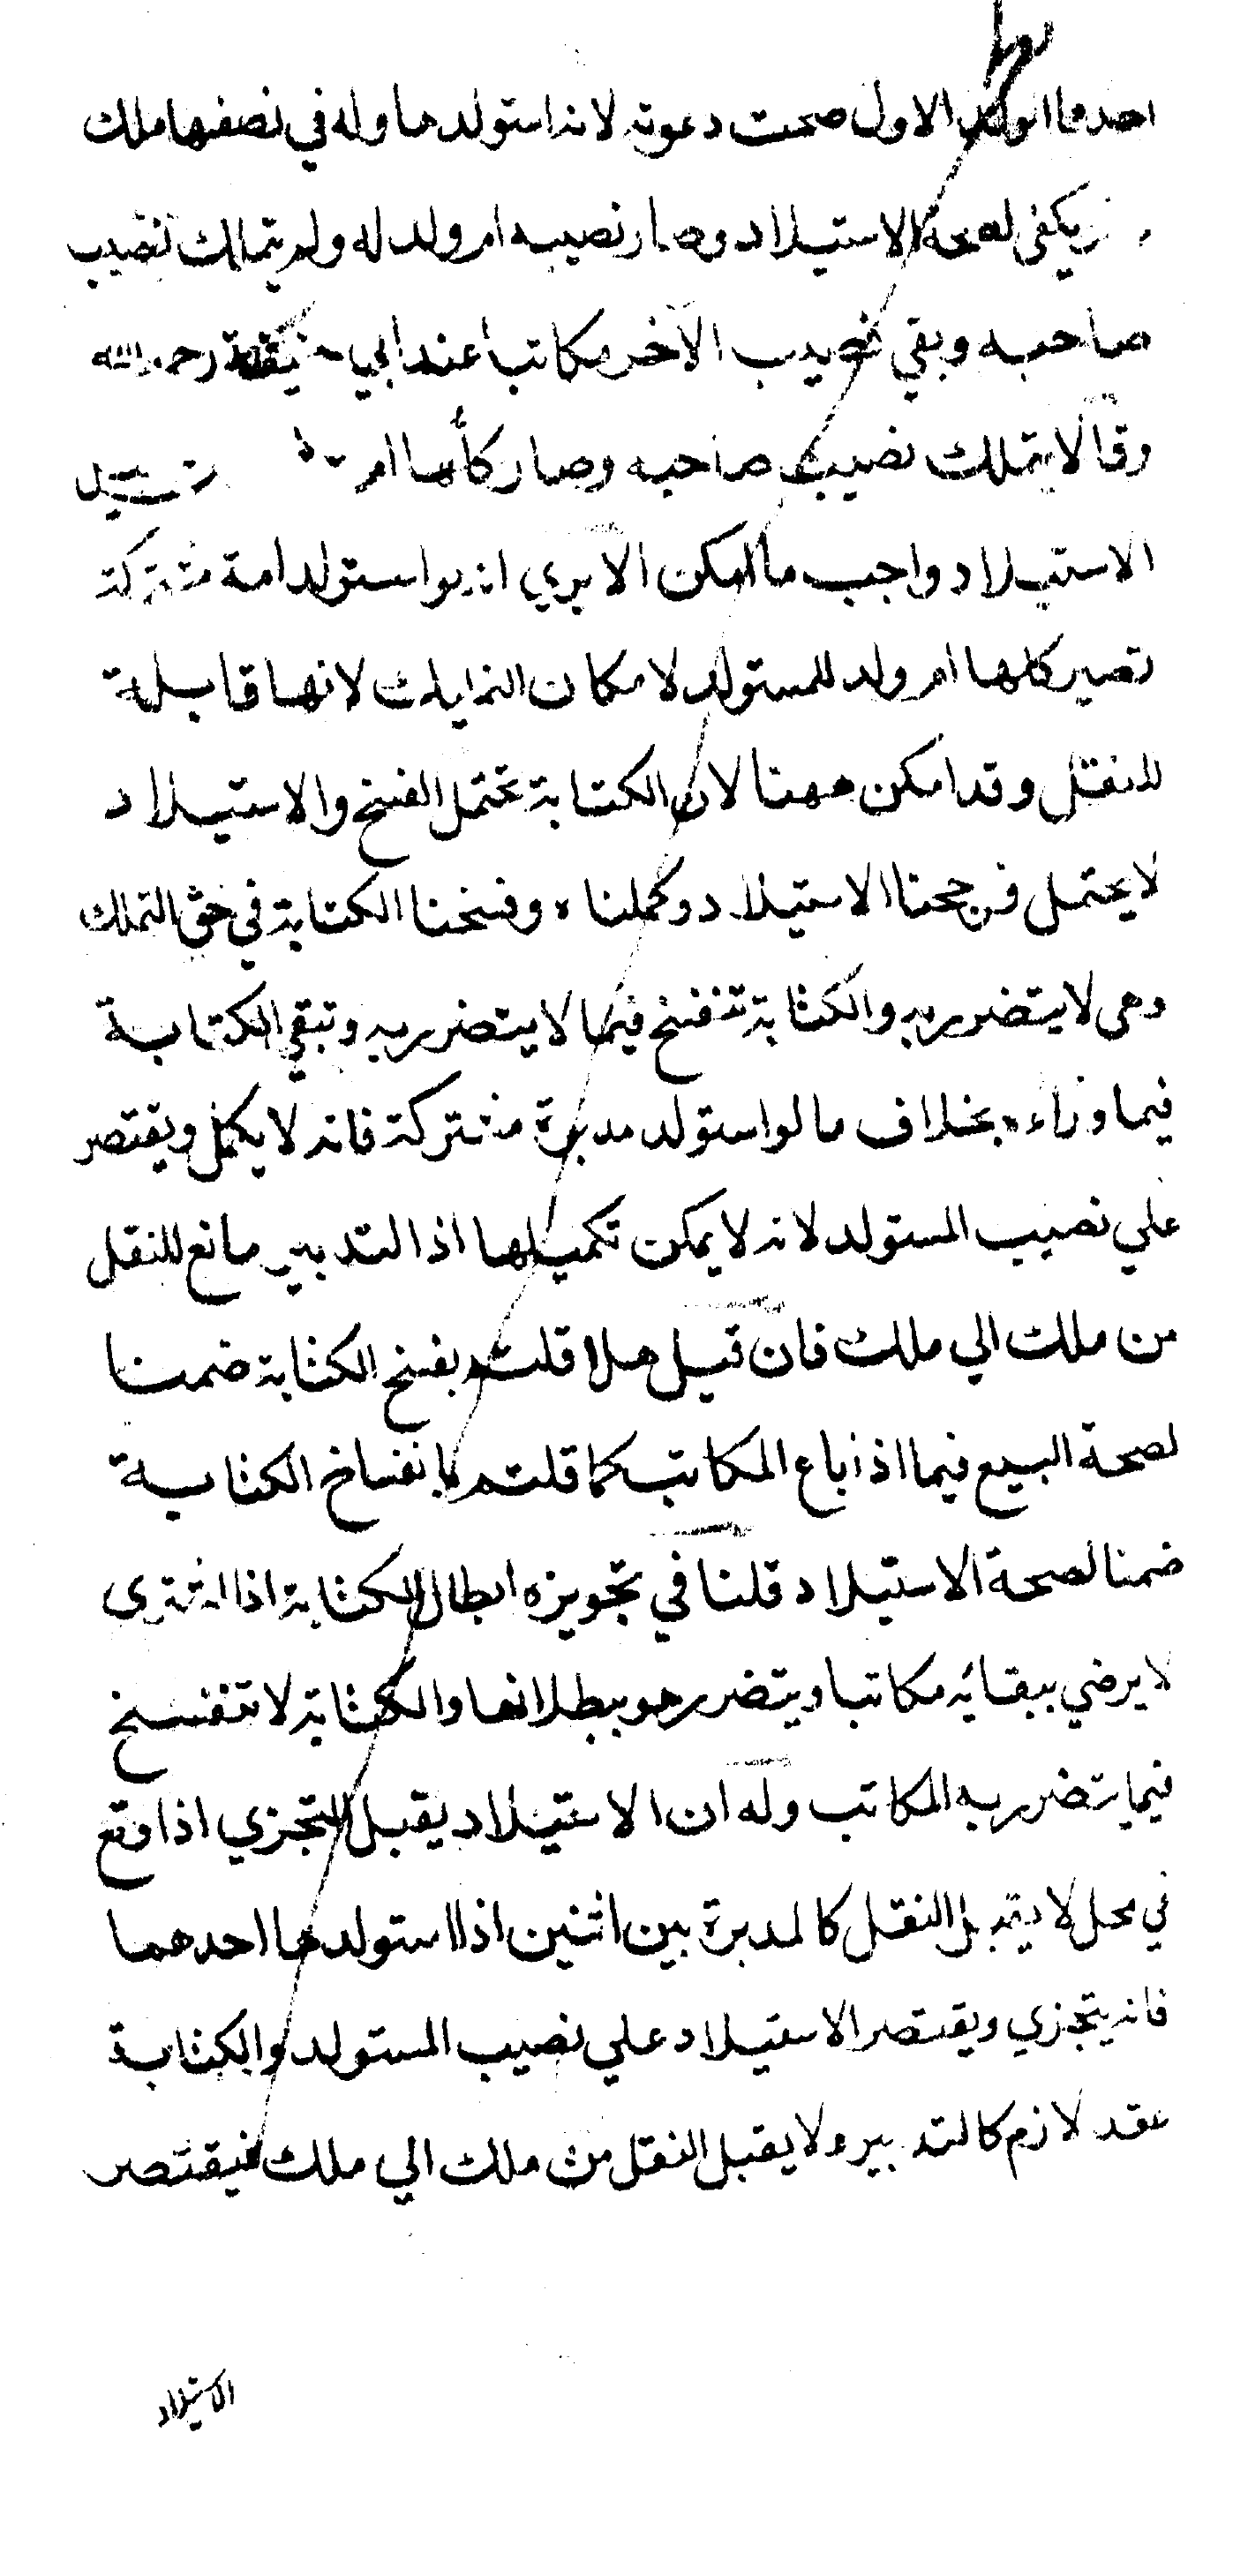 احدهما الولد الاول صحت دعوته لانه استولدها وله في نصفها ملك
يكفي لصحة الاستيلاد وصار نصيبه ام ولد له ولم يتملك نصيب
صاحبه وبقي نصيب الاخر مكاتبا عند ابي حنيفة رحمه الله
وقالا يتملك نصيب صاحبه وصار كأنها ام
الاستيلاد واجب ما امكن الا يري انه لو استولد امة مشتركة
تصير كلها ام ولد للمستولد لامكان التمليك لانها قابلة
للنقل وقد امكن ههنا لان الكتابة تحتمل الفسخ والاستيلاد
لا يحتمل فرجحنا الاستيلاد وكملناه وفسخنا الكتابة في حق التملك
وهي لا يتضرر به والكتابة تنفسخ فيما لا يتضرر به وتبقي الكتابة
فيما وراءه بخلاف ما لو استولد مدبرة مشتركة فانه لا يكمل ويقتصر
علي نصيب المستولد لانه لا يمكن تكميلها اذ التدبير مانع للنقل
من ملك الي ملك فان قيل هلا قلتم بفسخ الكتابة ضمنا
لصحة البيع فيما اذا باع المكاتب كما قلتم بانفساخ الكتابة
ضمنا لصحة الاستيلاد قلنا في تجويزه ابطال الكتابة اذ المشتري
لا يرضي ببقائه مكاتبا ويتضرر هو ببطلانها والكتابة لا تنفسخ
فيما يتضرر به المكاتب وله ان الاستيلاد يقبل التجزي اذا وقع
في محل لا يقبل النقل كالمدبرة بين اثنين اذا استولدها احدهما
فانه يتجزي ويقتصر الاستيلاد علي نصيب المستولد والكتابة
عقد لازم كالتدبير ولا يقبل النقل من ملك الي ملك فيقتصر
الاستيلاد